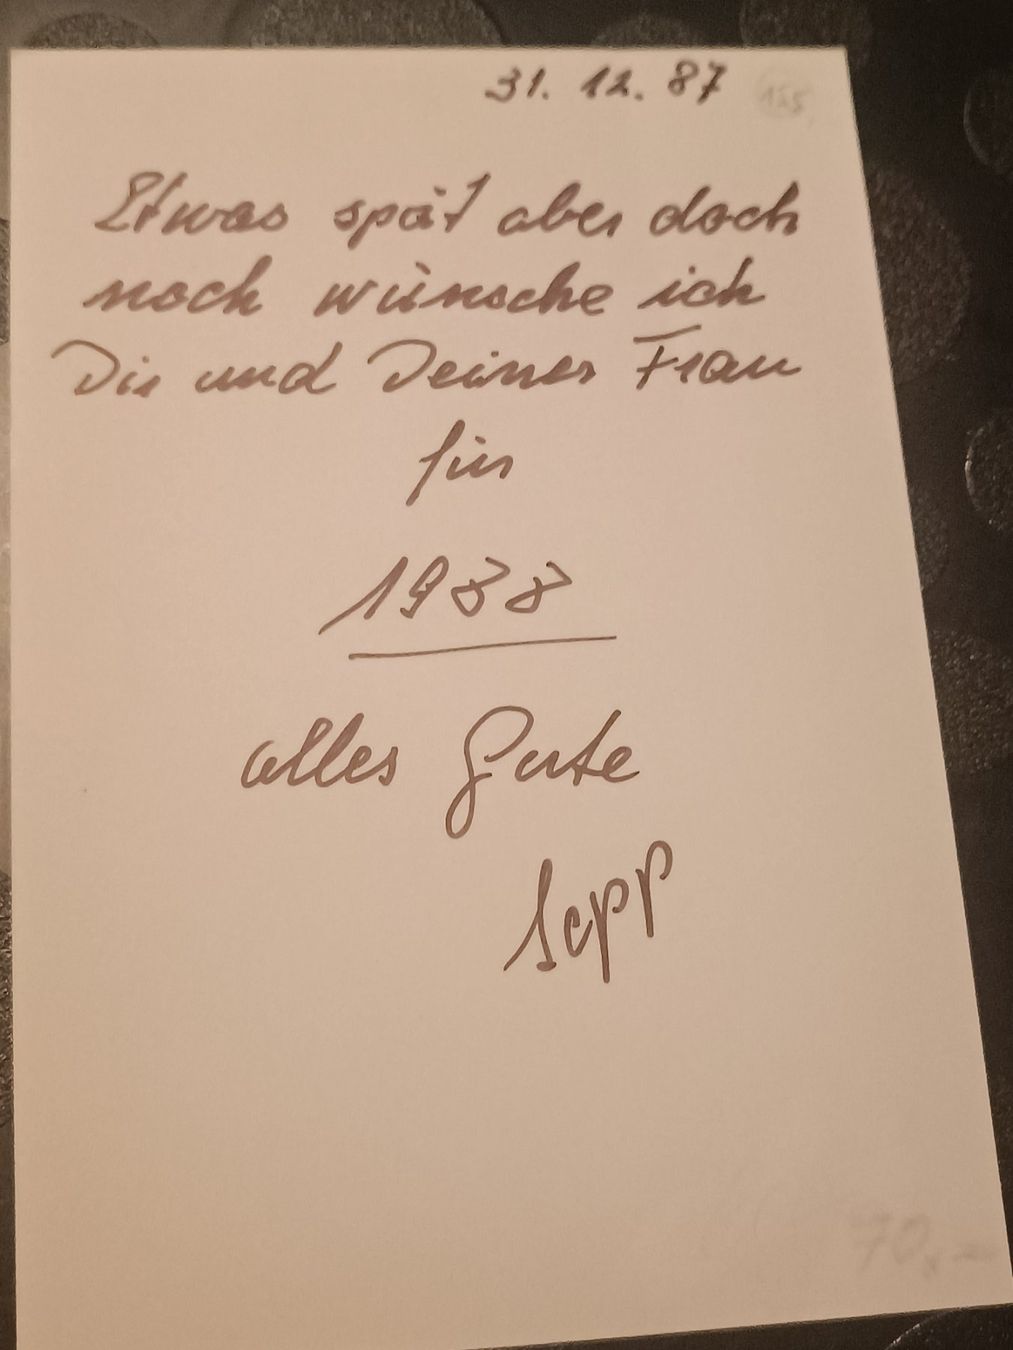 31. 12. 87
Etwas spät aber doch
noch wünsche ich
Dir und Deiner Frau
für
1988
alles Gute
Sepp
70,-